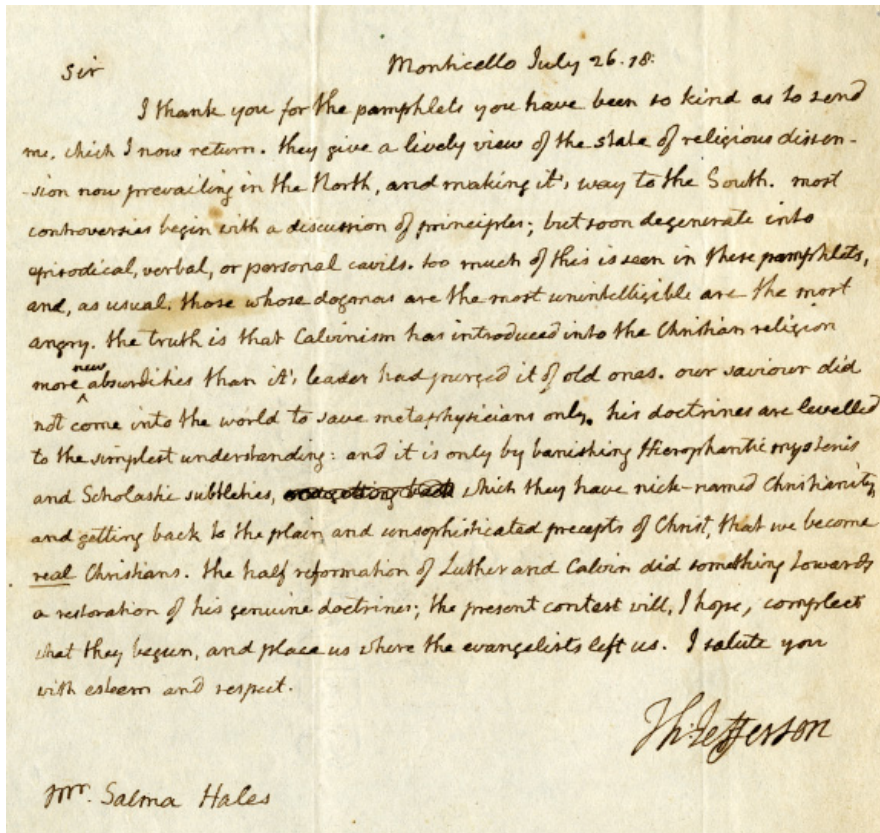 Monticello July 26. 18.
Sir
I thank you for the pamphlets you have been so kind as to send
me, which I now return. they give a lively view of the state of religious dissen-
-sion now prevailing in the North, and making it's way to the South. most
controversies begin with a discussion of principles; but soon degenerate into
episodical, verbal, or personal cavils. too much of this is seen in these pamphlets,
and, as usual, those whose dogmas are the most unintelligible are the most
angry. the truth is that Calvinism has introduced into the Christian religion
more new absurdities than it's leader had purged it of old ones. our saviour did
not come into the world to save metaphysicians only. his doctrines are levelled
to the simplest understanding: and it is only by banishing Hierophantic mysteries
and Scholastic subtleties, which they have nick-named Christianity,
and getting back to the plain and unsophisticated precepts of Christ, that we become
real Christians. the half reformation of Luther and Calvin did something towards
a restoration of his genuine doctrines; the present contest will, I hope, compleat
what they begun, and place us where the evangelists left us. I salute you
with esteem and respect.
Th: Jefferson
Mr. Salma Hales